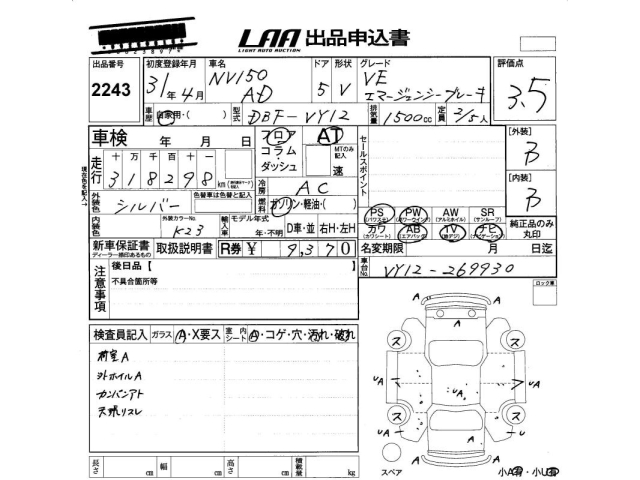 LAA 出品申込書
LIGHT AUTO AUCTION
出品番号 初度登録年月 車名 ドア 形状 グレード 評価点
2243 31年4月 NV150 AD 5 V VE エマージェンシーブレーキ 3.5
車歴 自家用・( ) 型式 DBF-VY12 排気量 1500cc 定員 2/5人
車検 年 月 日 フロア コラム・ダッシュ AT MTのみ記入 速 セールスポイント
[外装] B
走行 十万千百十一 318298 km 冷房 AC
[内装] B
外装色 シルバー 色替車は色替と記入 燃料 ガソリン・軽油・( )
PS PW AW SR
(パワステ) (パワーウインド) (アルミホイル) (サンルーフ)
内装色 外装カラーNo. K23 輸入車 モデル年式 年・不明 D車・並 右H・左H
カワ AB TV ナビ 純正品のみ丸印
(レザーシート) (エアバック) (地デジ) (ナビゲーション)
新車保証書 取扱説明書 R券 ¥ 9,370 名変期限 月 日迄
ディーラー捺印あるもの
車台No. VY12-269930
注意事項 後日品【 】
不具合箇所等
ロック車
検査員記入 ガラス A・X要ス 室内シート A・コゲ・穴・汚れ・破れ
荷室A
外ホイルA
カンバンアト
天張リスレ
A A
A
ス ス
UA UA
ス ス
UA U
A A
A
スペア 小A有・小U有
長さ cm 幅 cm 高さ cm 積載量 kg